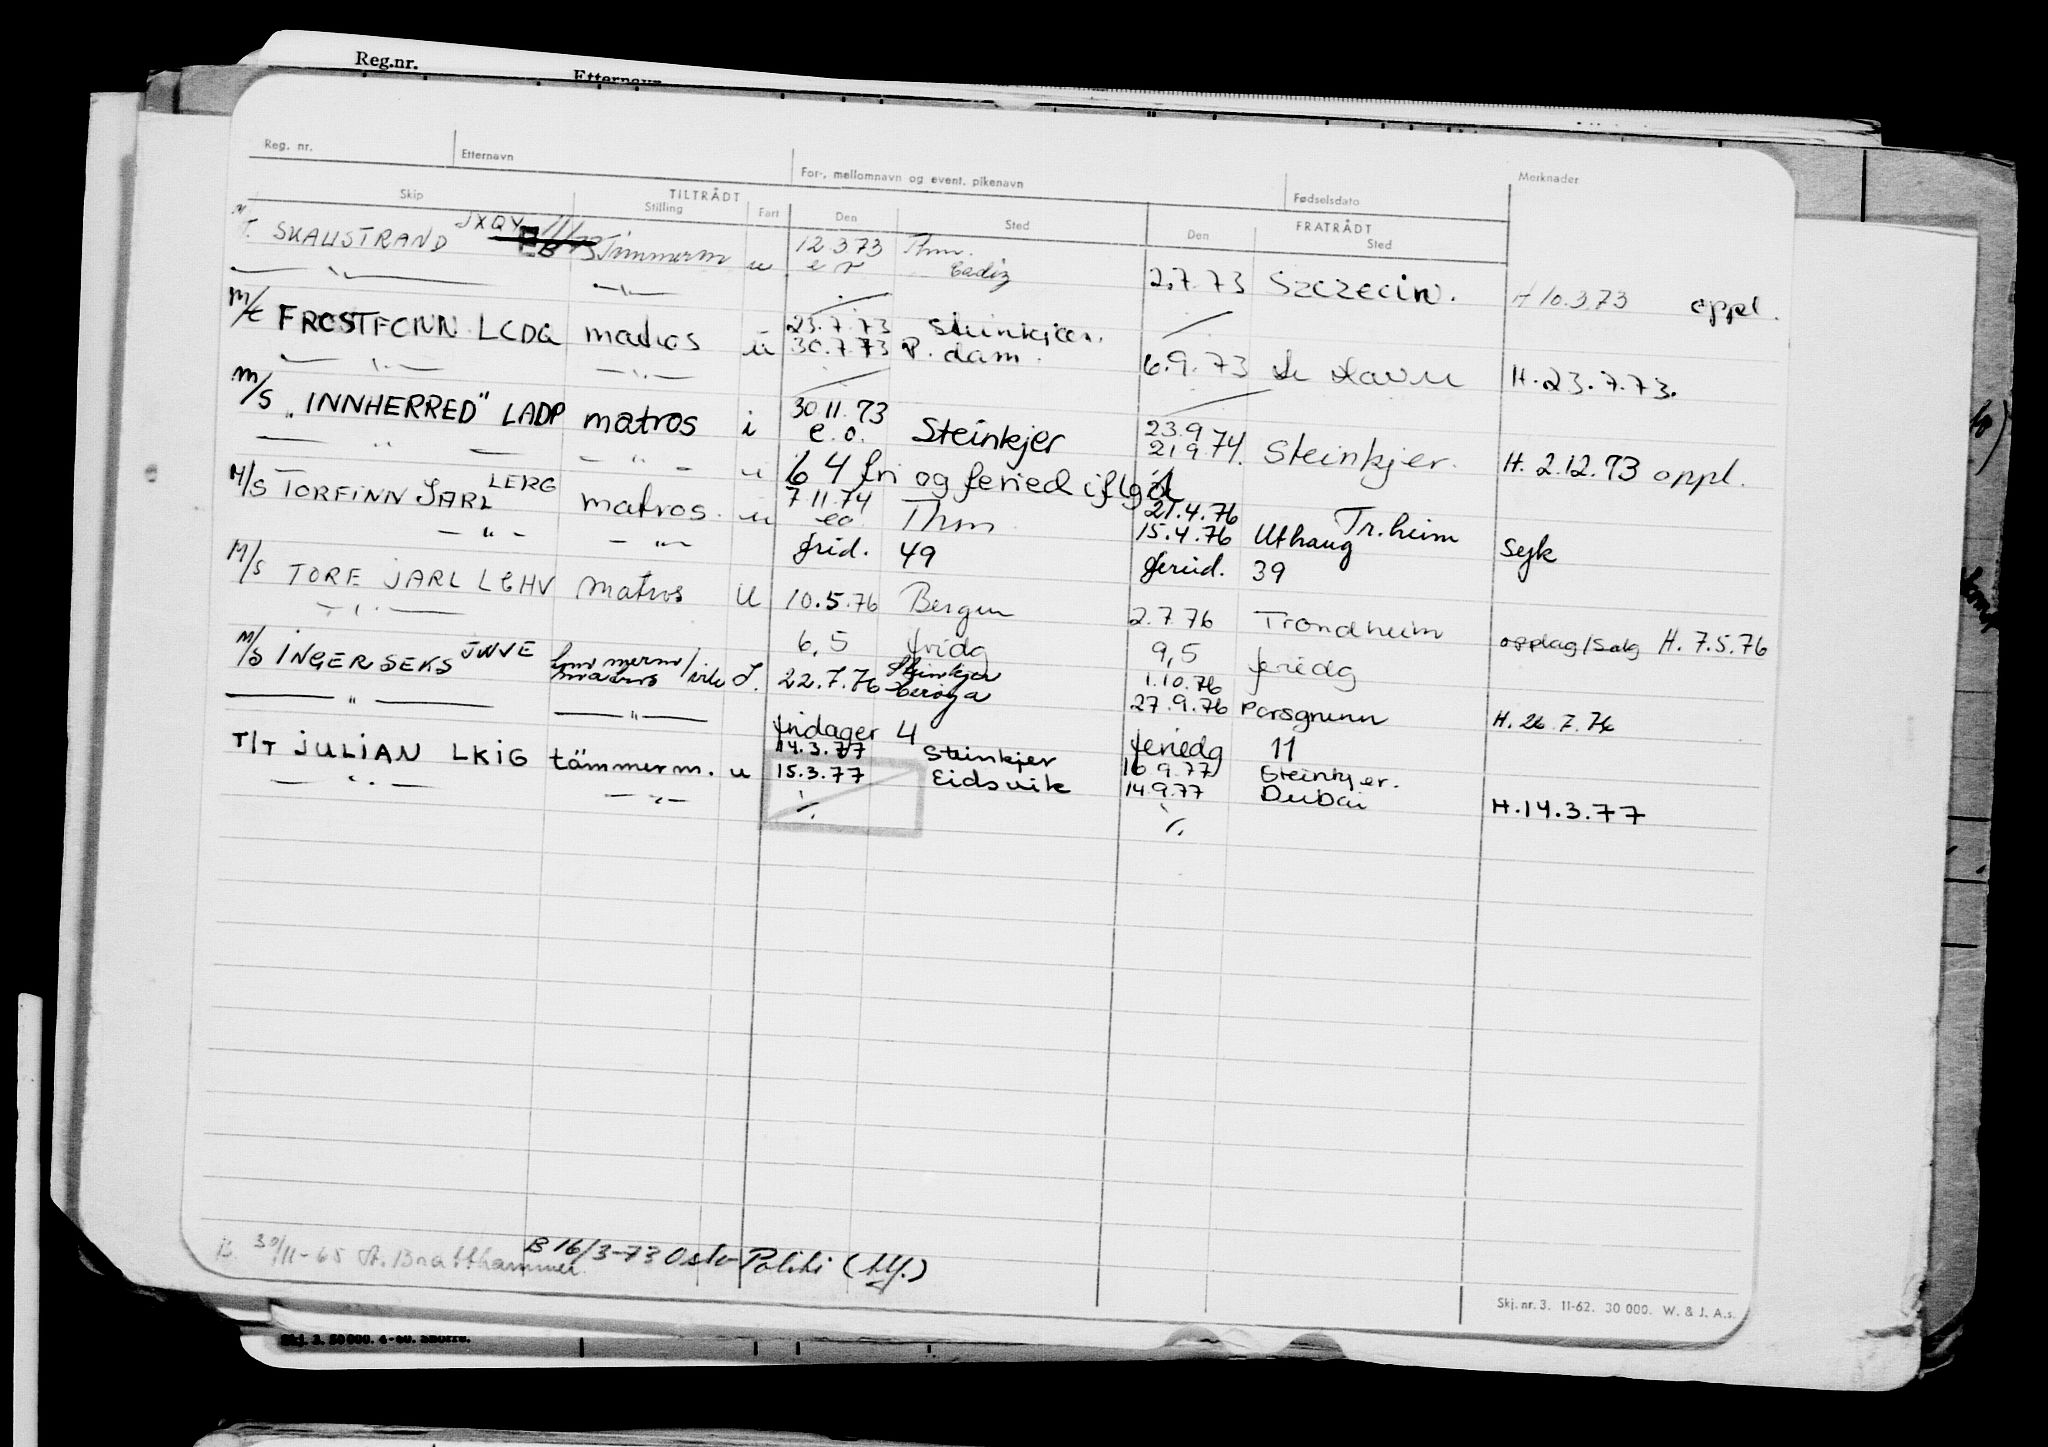 Reg.nr.
Etternavn
Reg. nr. Etternavn For-, mellomnavn og event. pikenavn Fødselsdato Merknader
Skip TILTRÅDT Stilling Fart Den Sted FRATRÅDT Den Sted
M/T. SKAUSTRAND JXQY Tømmerm u 12.3.73 Thm.
— " — — " — Cadiz 2.7.73 Szczecin. H 10.3.73 oppl.
M/T FROSTFONN LCDG matros u 23.7.73 Steinkjer.
— " — — " — 30.7.73 P. dam. 6.9.73 Le Havre H. 23.7.73.
M/S "INNHERRED" LADP matros i 30 11. 73 Steinkjer 23.9
— " — — " — u e.o. 21.9.74. Steinkjer. H. 2.12.73 oppl.
64 fri og feried iflg
M/S TORFINN JARL LERG matros. u 7.11.74 Thm 21.4.76 Tr.heim
— " — — " — eo 15.4.76 Uthaug Syk
frid. 49 feried. 39
M/S TORE JARL LEHV matros U 10.5.76 Bergen 2.7.76 Trondheim opplag/Salg H. 7.5.76
— " —
6,5 fridg 9,5 feriedg
M/S INGERSEKS JWVE tømmerm/ matros J. 22.7.76 Steinkjer Herøya 1.10.76
— " — — " — 27.9.76 Porsgrunn H. 26.7.76
fridager 4 feriedg 11
T/T JULIAN LKIG tämmerm. u 14.3.77 Steinkjer 16.9.77 Steinkjer.
— " — — " — 15.3.77 Eidsvik 14.9.77 Dubai H.14.3.77
B. 30/11-65 A. Bratthammer B 16/3-73 Oslo Politi
Skj. nr. 3. 11-62. 30 000. W. & J. A.s.